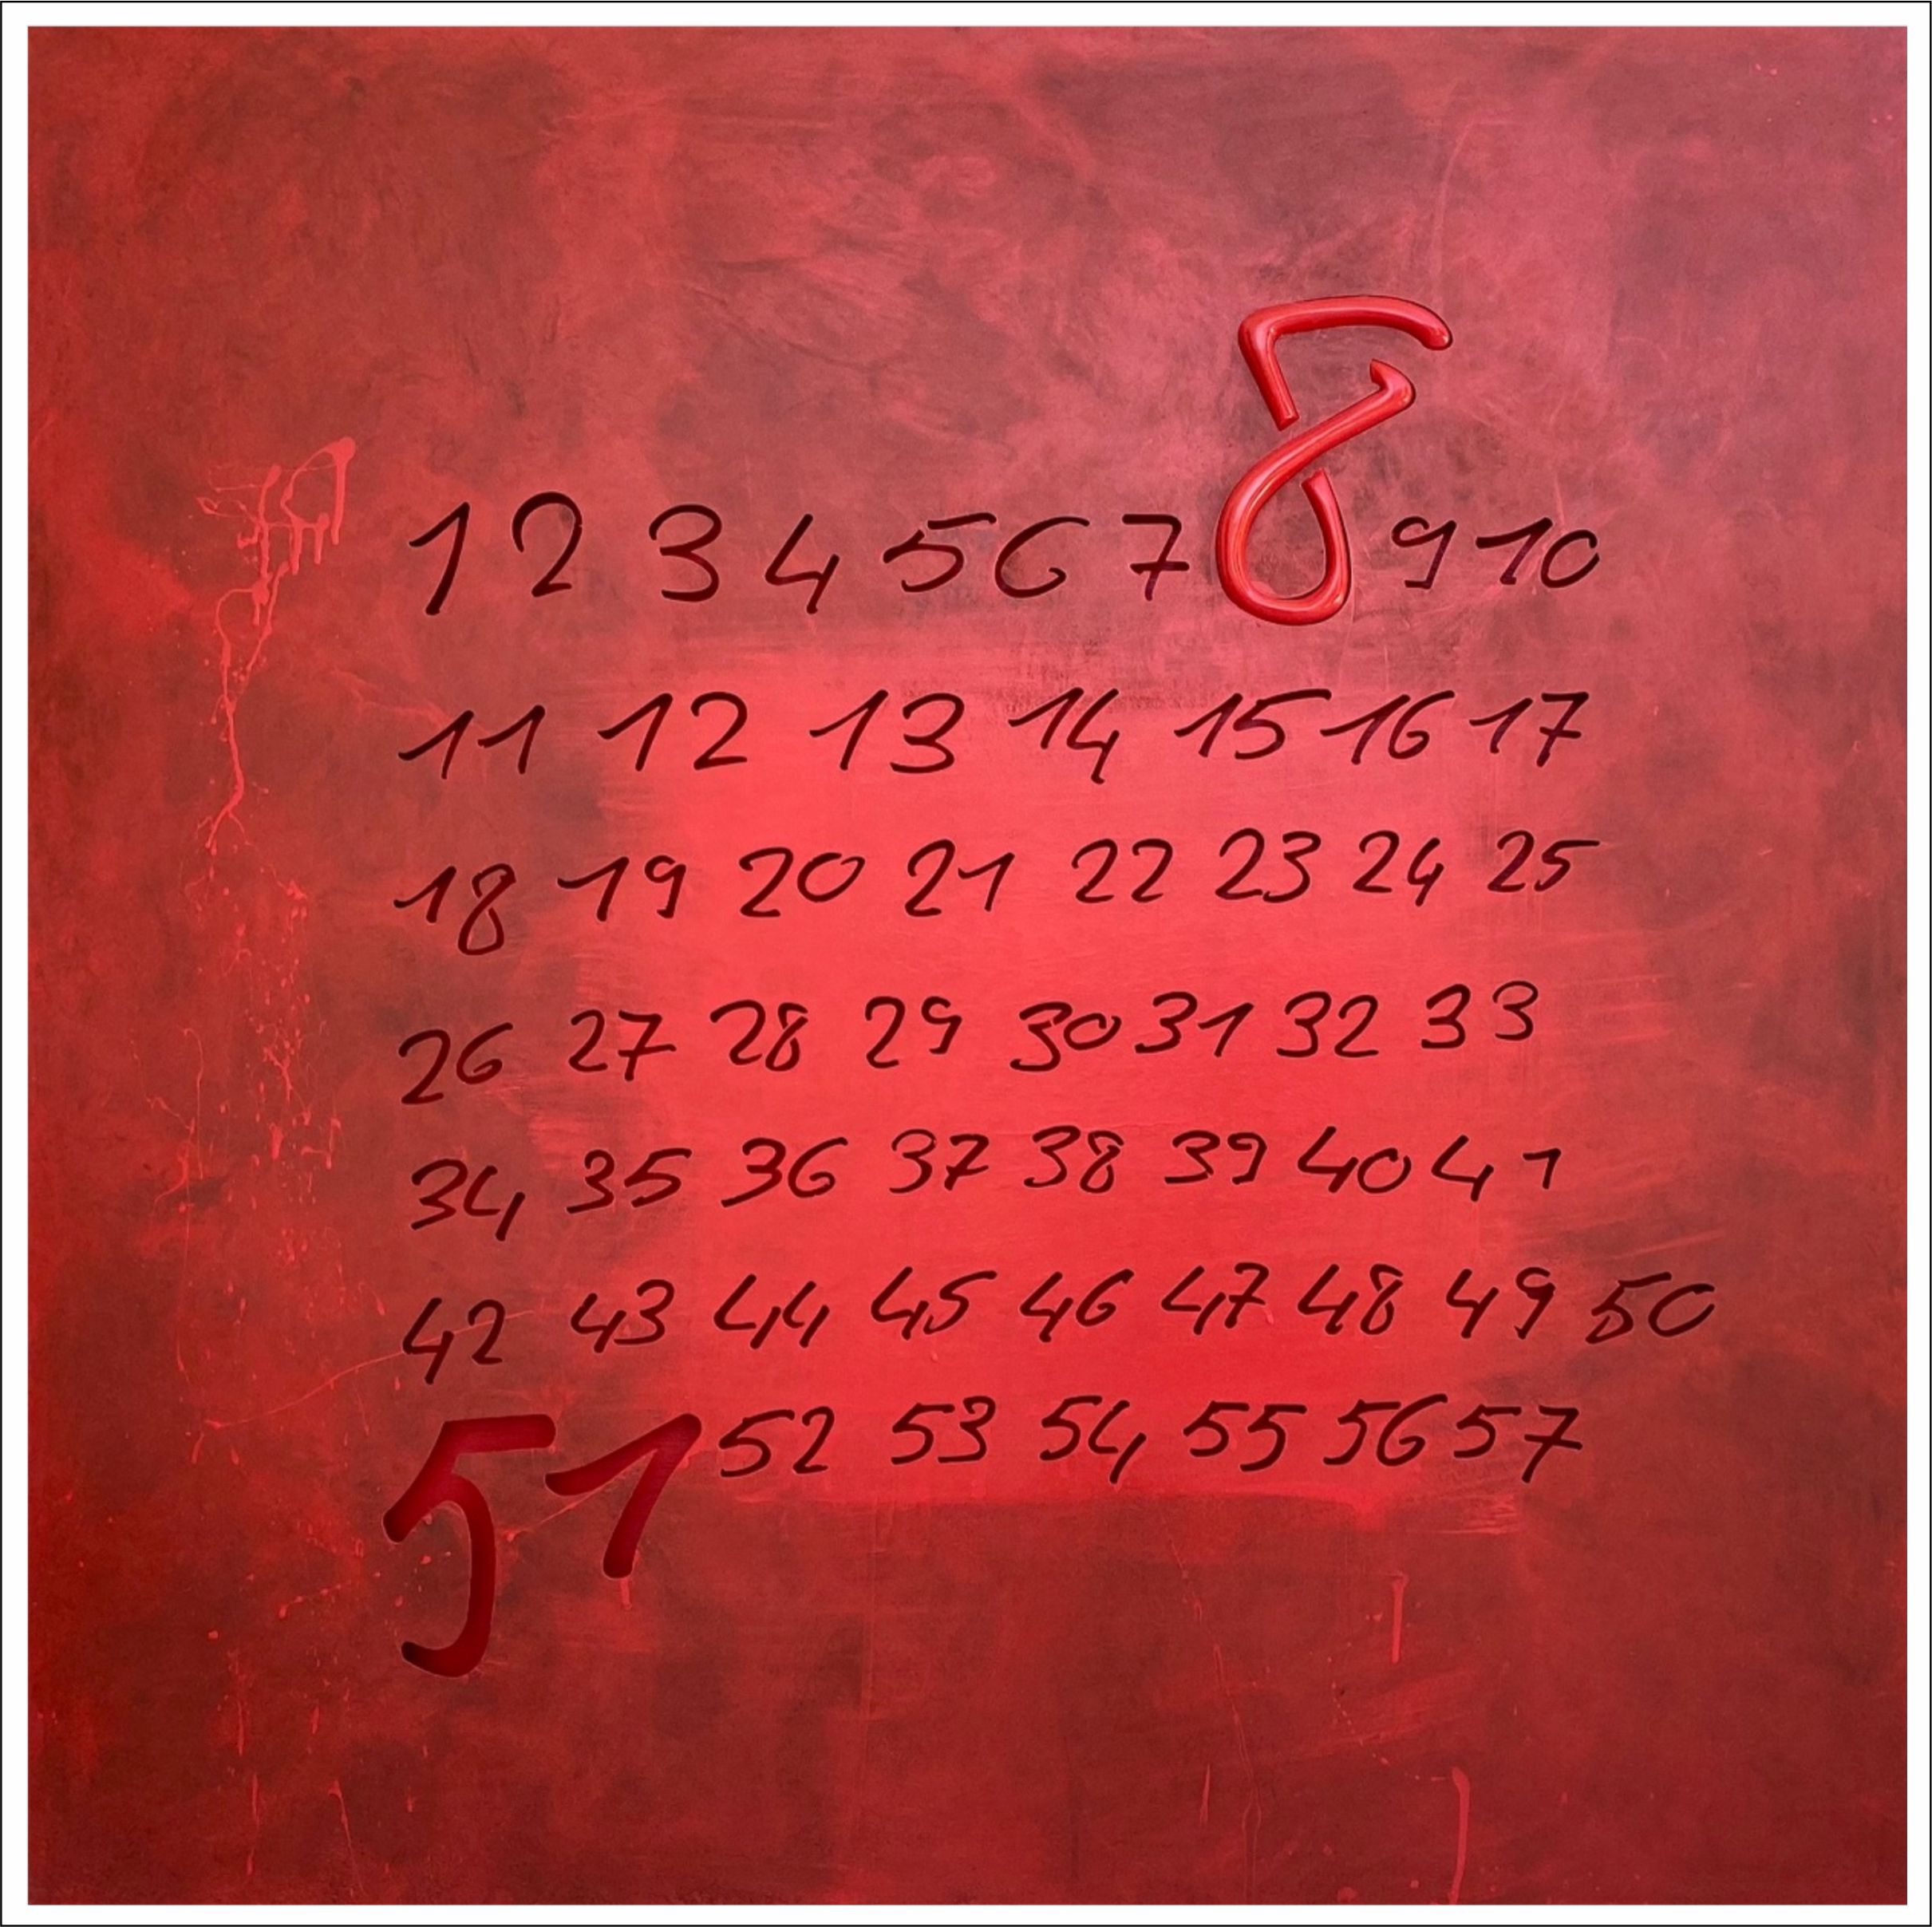 1 2 3 4 5 6 7 8 9 10
11 12 13 14 15 16 17
18 19 20 21 22 23 24 25
26 27 28 29 30 31 32 33
34 35 36 37 38 39 40 41
42 43 44 45 46 47 48 49 50
51 52 53 54 55 56 57